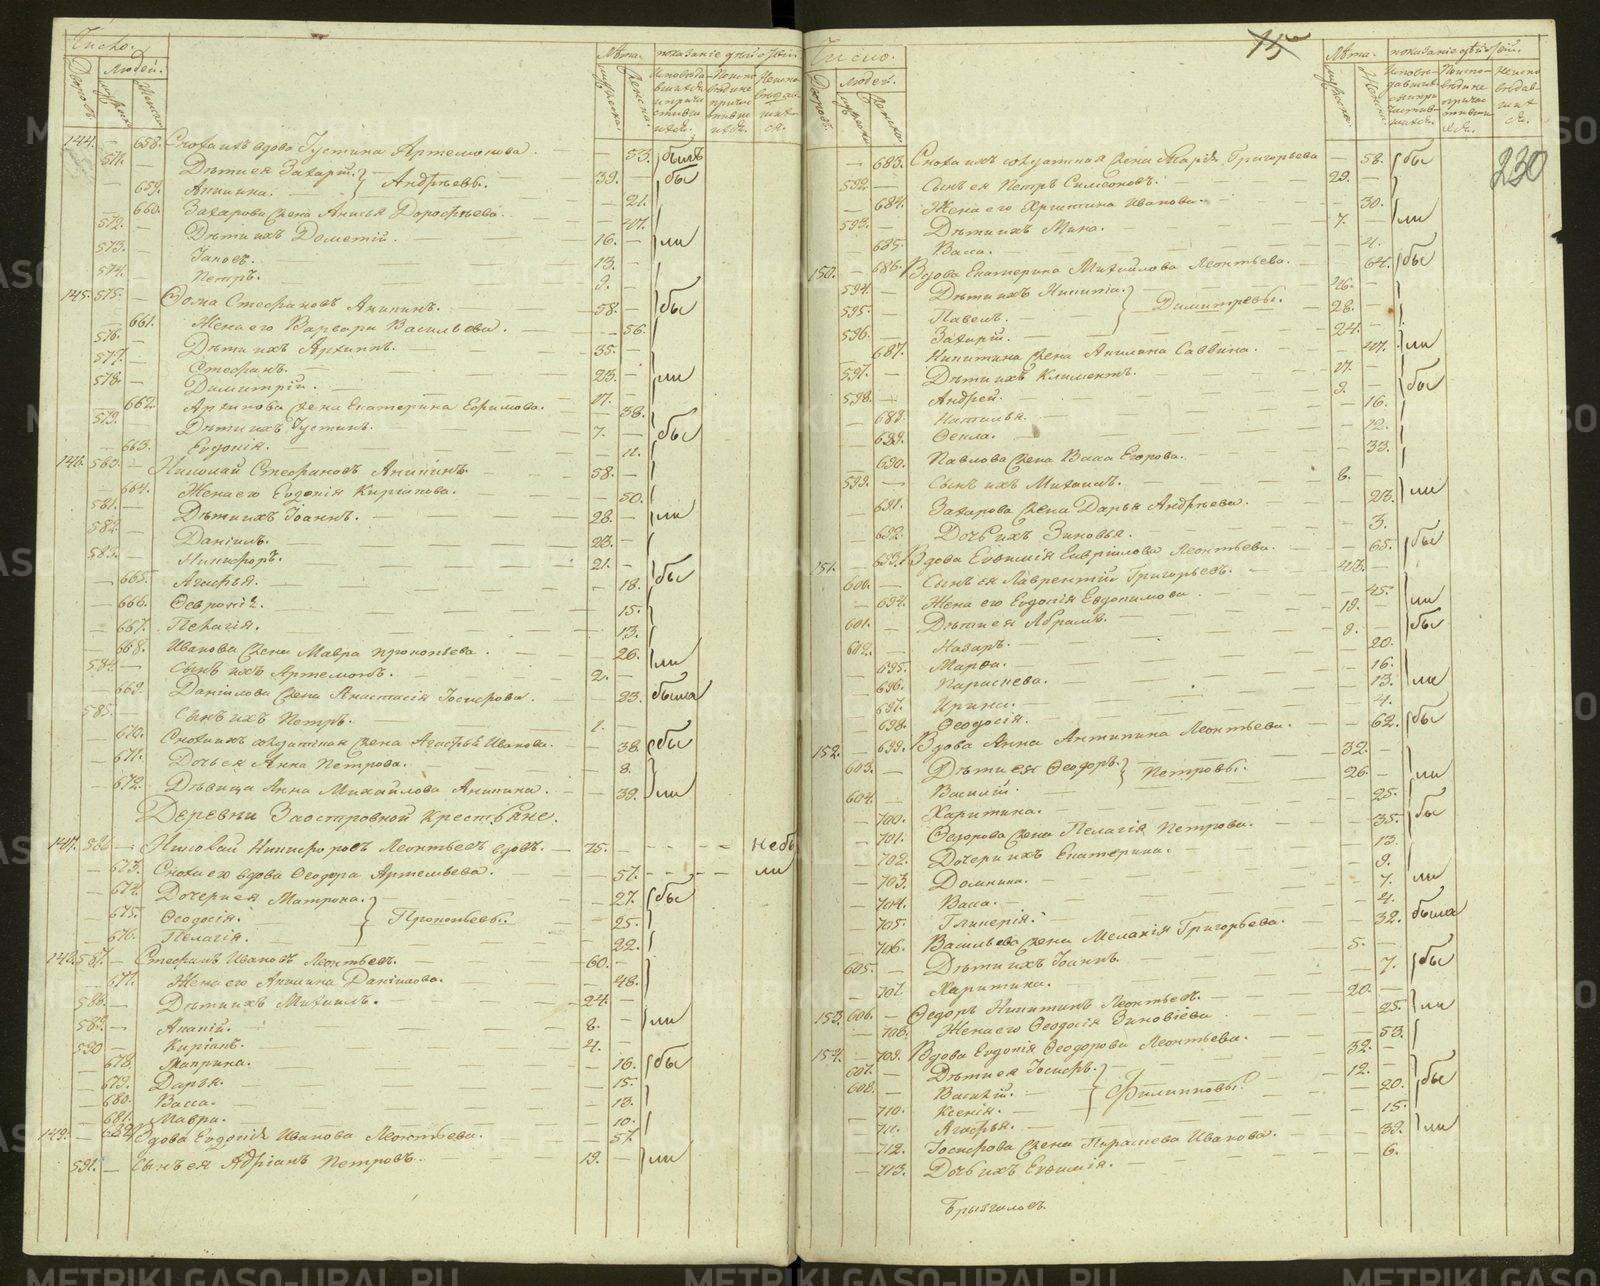 Число.
Дворовъ.
Людей.
мужеска.
женска.
Лѣта.
мужеска.
женска.
144. — 658. Сноха ихъ вдова Густина Артемонова. — 53. были
571. — Дѣти ея Захарій. } Андрѣевы. 39. — бы
— 659. Анинина. — 21.
— 660. Захарова жена Анисья Дорофѣева. — 47.
572. — Дѣти ихъ Дометій. — 16. — ли
573. — Іаковъ. — 13. —
574. — Петръ. — 9. —
145. 575. — Ѳома Стефановъ Аникинъ. — 58. — бы
— 661. Жена его Варвара Васильева. — 56.
576. — Дѣти ихъ Архиппъ. — 35. —
577. — Стефанъ. — 23. — ли
578. — Димитрій. — 17. —
— 662. Архипова жена Екатерина Ефимова. — 38.
579. — Дѣти ихъ Густинъ. — 7. — бы
— 663. Евдокія. — 11.
146. 580. — Николай Стефановъ Аникинъ — 58. —
— 664. Жена его Евдокія Киріакова. — 50.
581. — Дѣти ихъ Іоаннъ. — 28. — ли
582. — Даніилъ. — 23. —
583. — Никифоръ. — 21. —
— 665. Агафья. — 18. бы
— 666. Ѳевронія. — 15.
— 667. Пелагія. — 13.
— 668. Иванова жена Мавра Прокопьева. — 26. ли
584. — Сынъ ихъ Артемонъ. — 2. —
— 669. Даніилова жена Анастасія Іосифова. — 23. была
585. — Сынъ ихъ Петръ. — 1. —
— 670. Сноха ихъ солдатская жена Агафья Иванова. — 38. бы
— 671. Дочь ея Анна Петрова. — 8.
— 672. Дѣвица Анна Михайлова Аникина. — 39. ли
Деревни Заостровной крестьяне.
147. 586. — Николай Никифоровъ Леонтьевъ вдовъ. — 75. — небы
— 673. Сноха его вдова Ѳеодора Артемьева. — 57. ли
— 674. Дочери ея Матрона. } Прокопьевы. — 27. бы
— 675. Ѳеодосія. — 25.
— 676. Пелагія. — 22.
148. 587. — Стефанъ Ивановъ Леонтьевъ. — 60. —
— 677. Жена его Анинина Даніилова. — 48.
588. — Дѣти ихъ Михаилъ. — 24. —
589. — Ананій. — 8. — ли
590 — Киріакъ. — 4. —
— 678. Матрина. — 16. бы
— 679. Дарья. — 15.
— 680. Васса. — 13.
— 681. Мавра. — 10.
149. — 682. Вдова Евдокія Иванова Леонтьева. — 57.
591. — Сынъ ея Адріанъ Петровъ. — 19. — ли
Число.
Дворовъ.
Людей.
мужеска.
женска.
15
Лѣта.
мужеска.
230
— 683. Сноха ихъ солдатская жена Марія Григорьева — 58. бы
592. — Сынъ ея Петръ Симеоновъ. — 29. —
— 684. Жена его Христина Иванова. — 30.
593. — Дѣти ихъ Мина. — 7. — ли
— 685. Васса. — 4.
150. — 686. Вдова Екатерина Михайлова Леонтьева. — 64. бы
594. — Дѣти ихъ Никита. } Димитревы. 46. —
595. — Павелъ. 28. —
596. — Захарій. 24. —
— 687. Никитина жена Акилина Саввина. — 47. ли
597. — Дѣти ихъ Климентъ. — 17. —
598. — Андрей. — 9. — бы
— 688. Наталья. — 16.
— 689. Ѳекла. — 12.
— 690. Павлова жена Васса Егорова. — 33.
599. — Сынъ ихъ Михаилъ. — 6. —
— 691. Захарова жена Дарья Андрѣева. — 23. ли
— 692. Дочь ихъ Зиновья. — 3.
151. — 693. Вдова Евѳимія Гавріилова Леонтьева. — 65. бы
600. — Сынъ ея Лаврентій Григорьевъ. — 43. —
— 694. Жена его Евдокія Евдокимова — 45. ли
601. — Дѣти ея Абрамъ. — 19. —
602. — Назаръ. — 9. — бы
— 695. Марѳа. — 20.
— 696. Параскева. — 16.
— 697. Ирина. — 13. ли
— 698. Ѳеодосія. — 4.
152. — 699. Вдова Анна Антипина Леонтьева. — 62. бы
603. — Дѣти ея Ѳеодоръ. } Петровы. 32. —
604. — Василій. 26. — ли
— 700. Харитина. — 25.
— 701. Ѳедорова жена Пелагія Петрова. — 35. бы
— 702. Дочери ихъ Екатерина. — 13.
— 703. Домнина. — 9.
— 704. Васса. — 7. ли
— 705. Гликерія. — 4.
— 706. Васильева жена Меланія Григорьева. — 32. была
605. — Дѣти ихъ Іоаннъ. — 5. —
— 707. Харитина. — 7. бы
153. 606. — Ѳедоръ Никитинъ Леонтьевъ. — 20. —
— 708. Жена его Ѳеодосія Зиновіева — 25. ли
154. — 709. Вдова Евдокія Ѳеодорова Леонтьева. — 53.
607. — Дѣти ея Іосифъ. } Филипповы. 32. —
608. — Василій. 12. —
— 710. Ксенія. — 20. бы
— 711. Агафья. — 15.
— 712. Іосифова жена Параскева Иванова. — 39. ли
— 713. Дочь ихъ Евѳимія. — 6.